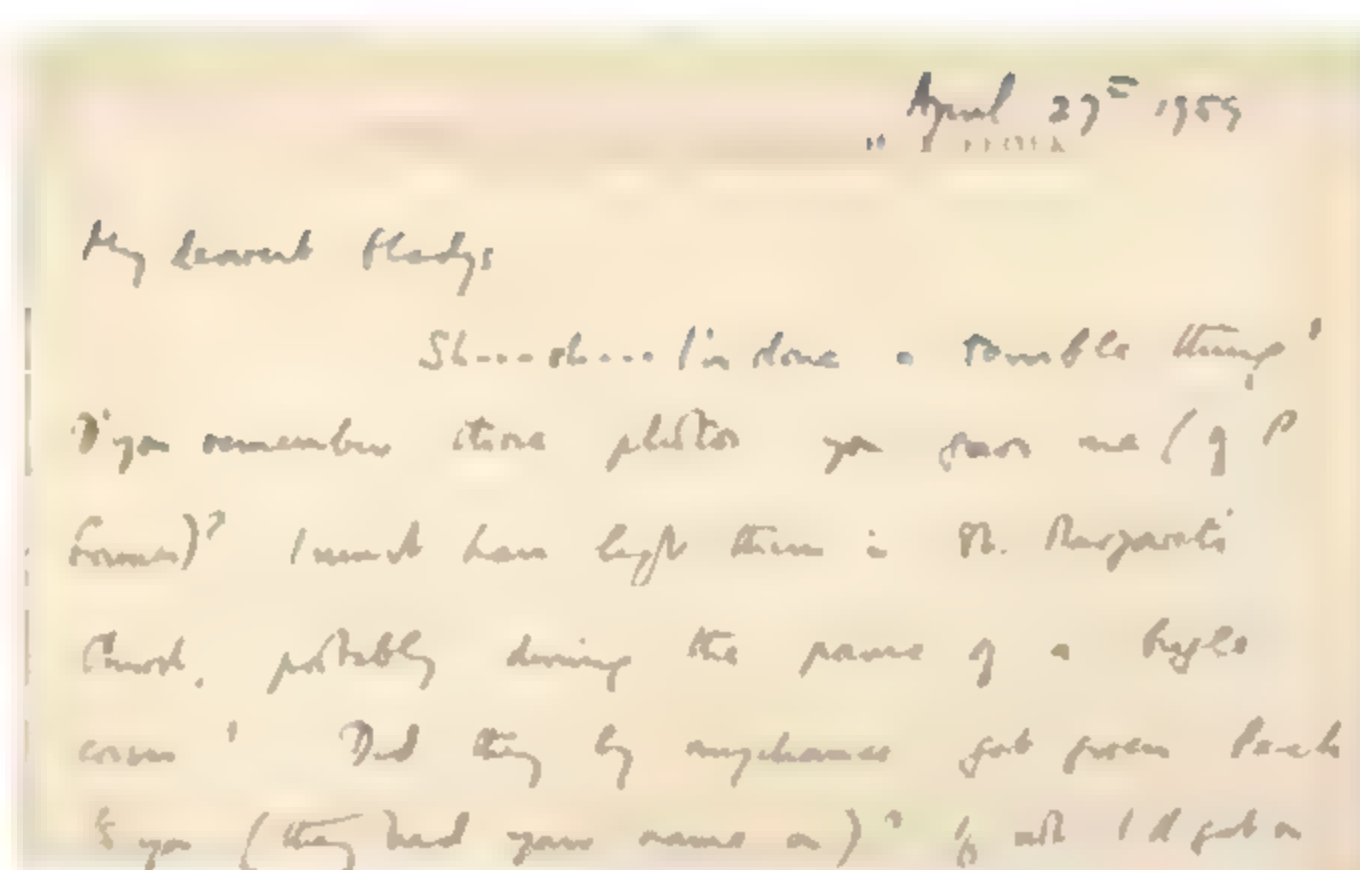 April 27th 1959
My dearest Gladys
Sh....sh... I've done a terrible thing!
D'you remember those photos you gave me (of P
)? I must have left them in St. Margaret's
Church, probably during the panic of a bugle
! Did they by anychance get given back
to you (they had your name on)? If not I'll get on